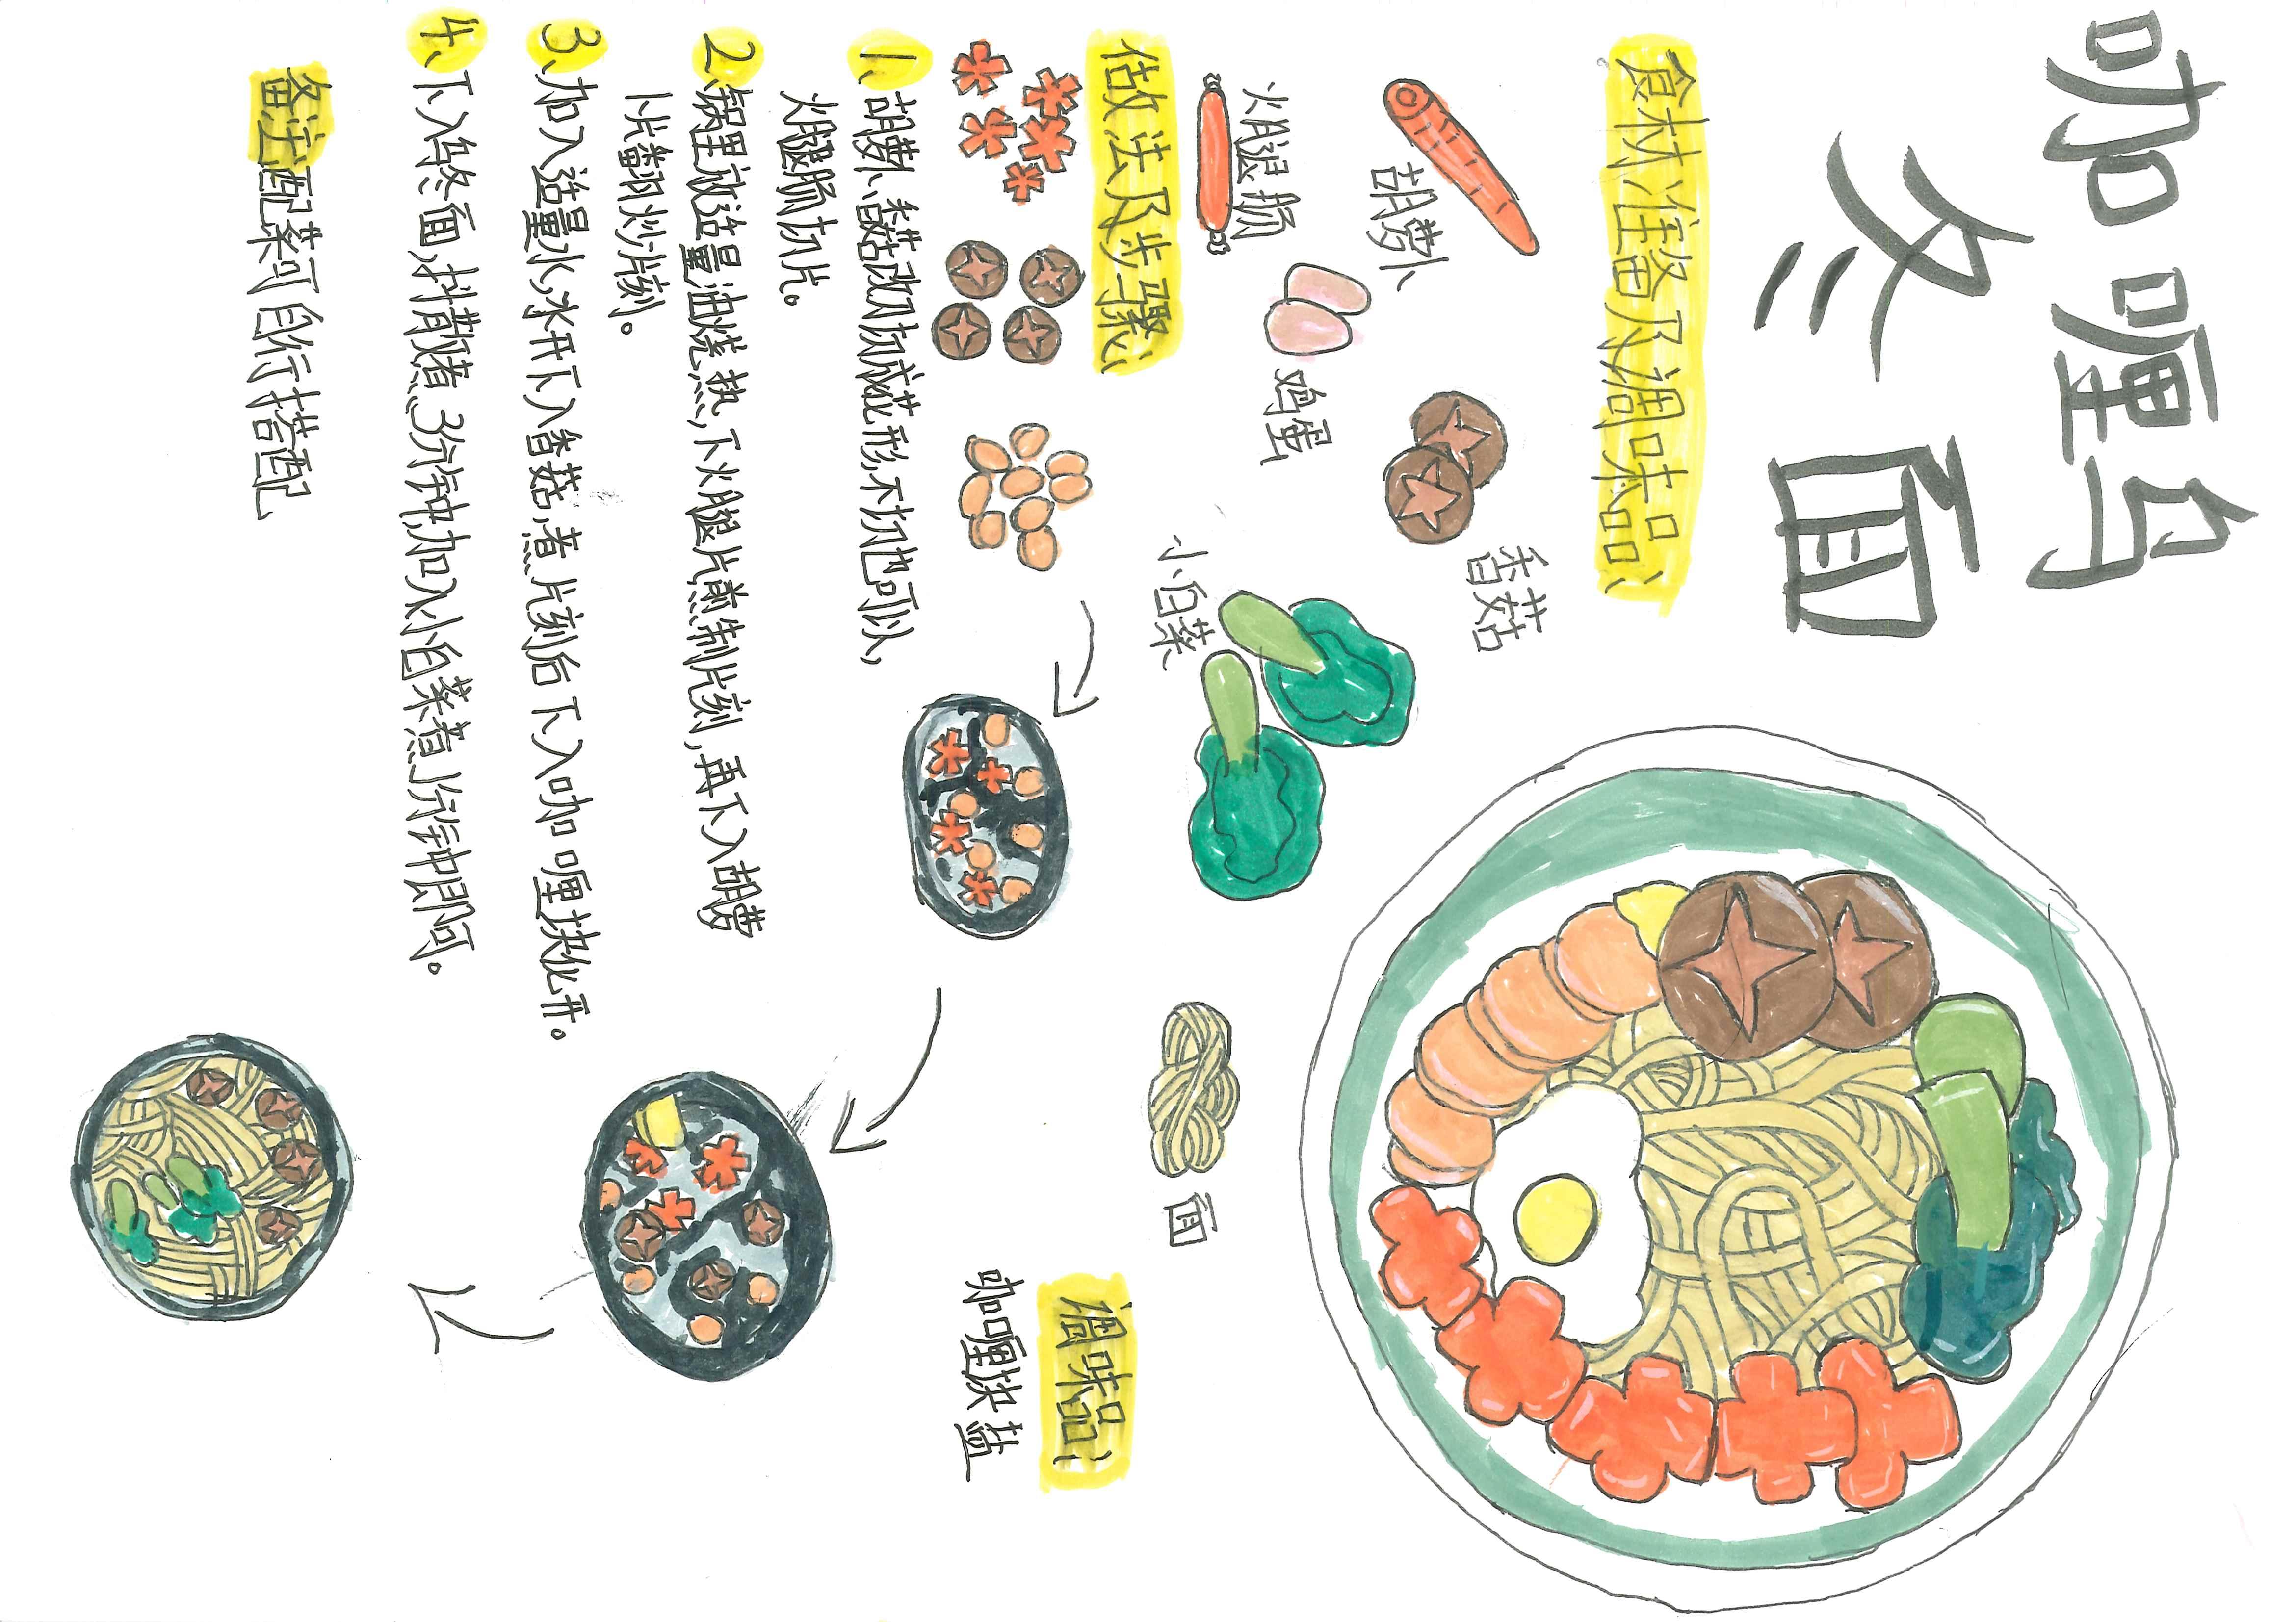 咖喱乌
冬面
食材准备及调味品:
胡萝卜
香菇
火腿肠
鸡蛋
小白菜
面
调味品:
咖喱块盐
做法及步骤:
1、胡萝卜、香菇改刀切成花形,不切也可以,
火腿肠切片。
2、锅里放适量油烧热,下火腿片煎制片刻,再下入胡萝
卜片翻炒片刻。
3、加入适量水,水开下入香菇,煮片刻后下入咖喱块化开。
4、下入乌冬面,抖散煮3分钟,加入小白菜煮1分钟即可。
备注:配菜可自行搭配